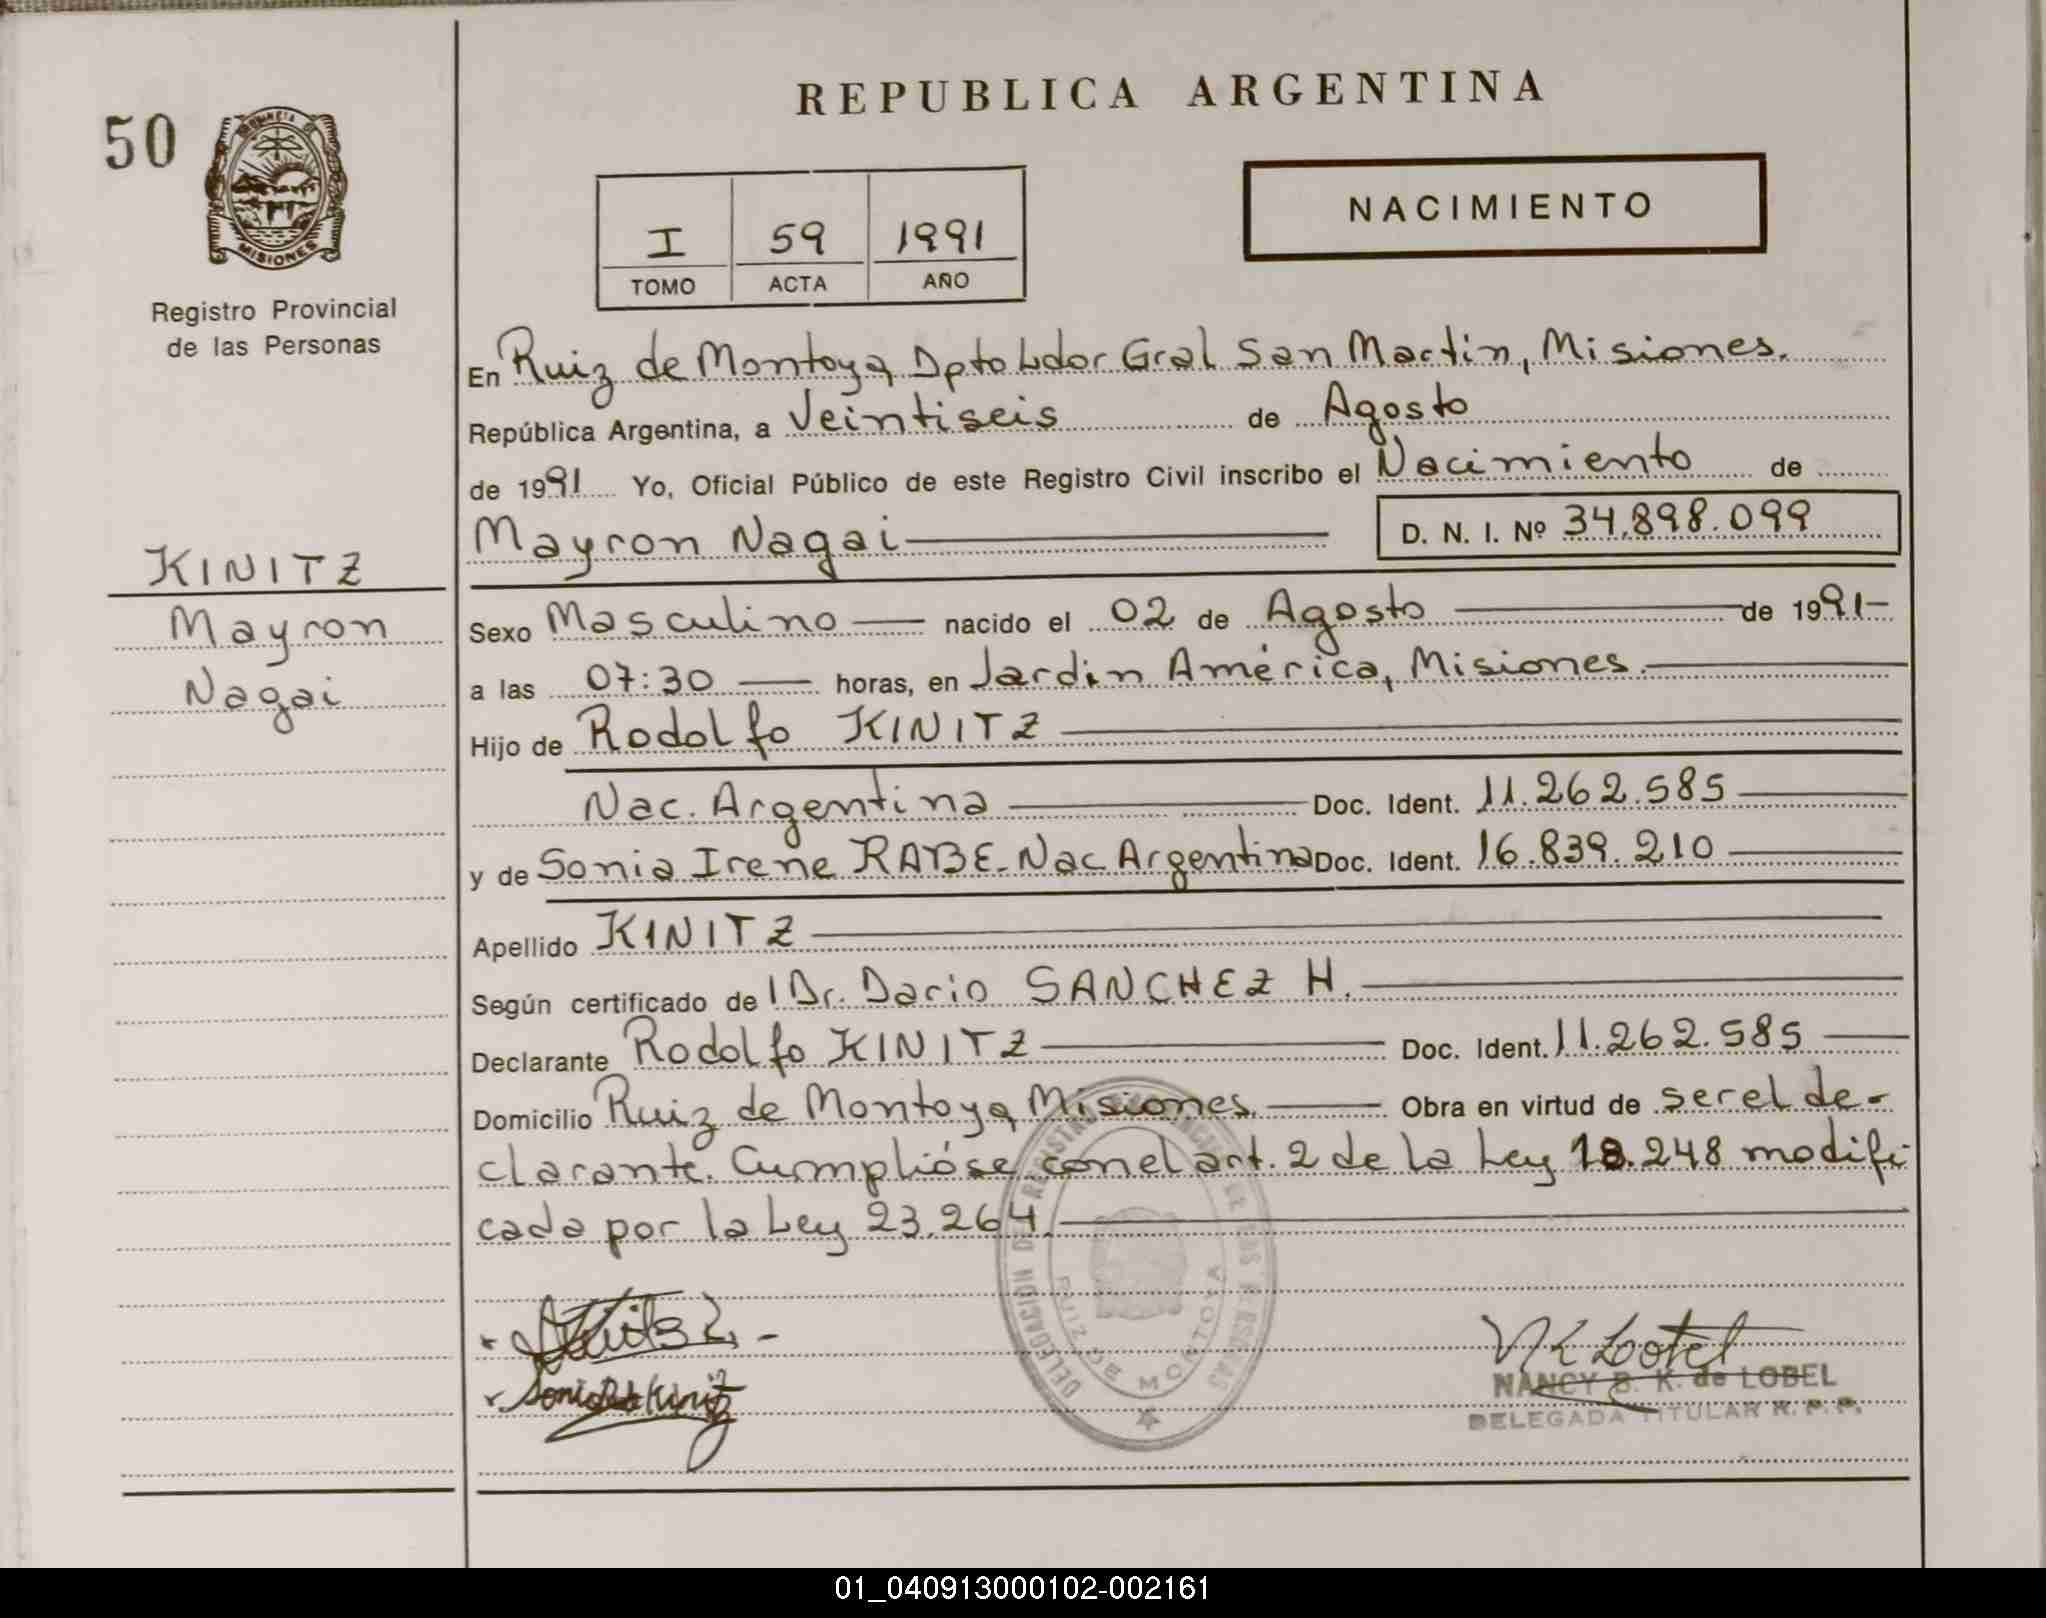 REPUBLICA ARGENTINA
50
PROVINCIA DE
MISIONES
Registro Provincial
de las Personas
NACIMIENTO
I 59 1991
TOMO ACTA AÑO
En Ruiz de Montoya, Dpto Ldor Gral San Martin, Misiones.
República Argentina, a Veintiseis de Agosto
de 1991 Yo, Oficial Público de este Registro Civil inscribo el Nacimiento de
Mayron Nagai D. N. I. Nº 34.898.099
KINITZ
Mayron
Nagai
Sexo Masculino nacido el 02 de Agosto de 1991-
a las 07:30 horas, en Jardin América, Misiones.
Hijo de Rodolfo KINITZ
Nac. Argentina Doc. Ident. 11.262.585
y de Sonia Irene RABE. Nac Argentina Doc. Ident. 16.839.210
Apellido KINITZ
Según certificado del Dr. Dario SANCHEZ H.
Declarante Rodolfo KINITZ Doc. Ident. 11.262.585
Domicilio Ruiz de Montoya, Misiones. Obra en virtud de ser el de-
clarante. Cumplióse con el art. 2 de la Ley 18.248 modifi
cada por la Ley 23.264.
DELEGACION DEL REGISTRO PROVINCIAL DE LAS PERSONAS
RUIZ DE MONTOYA
NANCY B. K. de LOBEL
DELEGADA TITULAR R. P. P.
01_040913000102-002161